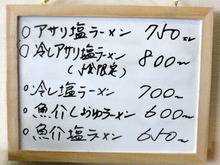 ○アサリ塩ラーメン 750
○冷しアサリ塩ラーメン 800
(限定)
○冷し塩ラーメン 700
○魚介しおゆラーメン 600
○魚介塩ラーメン 650